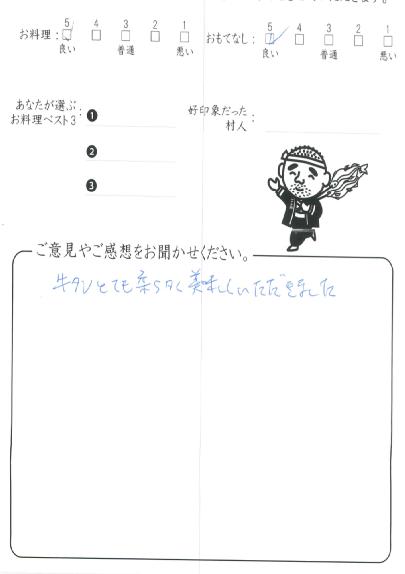 5 4 3 2 1
お料理：□ □ □ □ □
良い 普通 悪い
5 4 3 2 1
おもてなし：□ □ □ □ □
良い 普通 悪い
あなたが選ぶ
お料理ベスト3：
❶
❷
❸
好印象だった
村人：
ご意見やご感想をお聞かせください。
牛タンとても柔らかく美味しいただきました